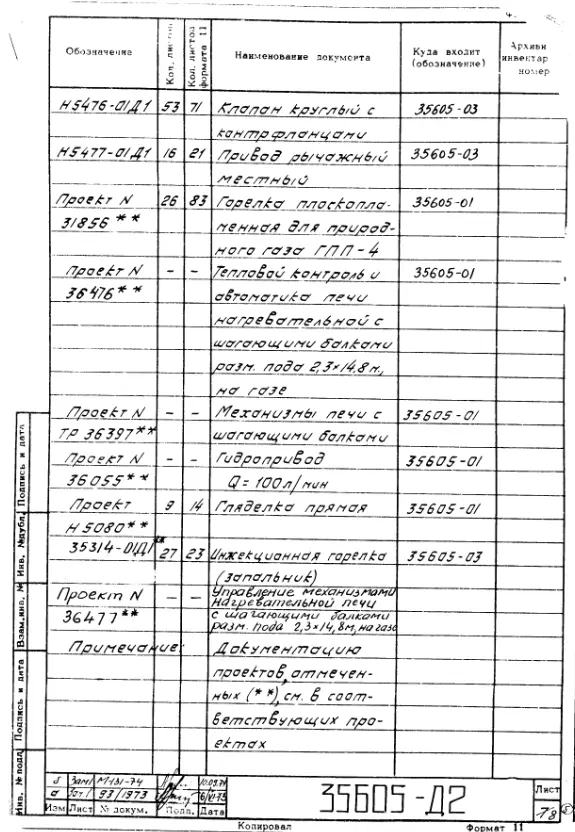 Обозначение Кол. листов Кол. листов формата 11 Наименование документа Куда входит (обозначение) Архивн инвентар номер
Н5476-01Д1 53 71 Клапан круглый с 35605-03
контрфланцами
Н5477-01Д1 16 21 Привод рычажный 35605-03
местный
Проект N 26 83 Горелка плоскопла- 35605-01
31856** менная для природ-
ного газа ГПП-4
Проект N - - Тепловой контроль и 35605-01
36476** автоматика печи
нагревательной с
шагающими балками
разм. пода 2,3×14,8м,
на газе
Проект N - - Механизмы печи с 35605-01
ТР 36397** шагающими балками
Проект N - - Гидропривод 35605-01
36055** Q=100л/мин
Проект 9 14 Гляделка прямая 35605-01
Н5080**
35314-01Д1** 27 23 Инжекционная горелка 35605-03
(запальник)
Проект N - - Управление механизмами
нагревательной печи
36477** с шагающими балками
разм. пода 2,3×14,8м, на газе
Примечание: Документацию
проектов, отмечен-
ных (**), см. в соот-
ветствующих про-
ектах
Инв. № подл. Подпись и дата Взам. инв. № Инв. № дубл. Подпись и дата
б Зам М-131-74 10.09.74
а Зам 93/1973
Изм Лист № докум. Подп. Дата
35605-Д2
Лист
Копировал Формат 11